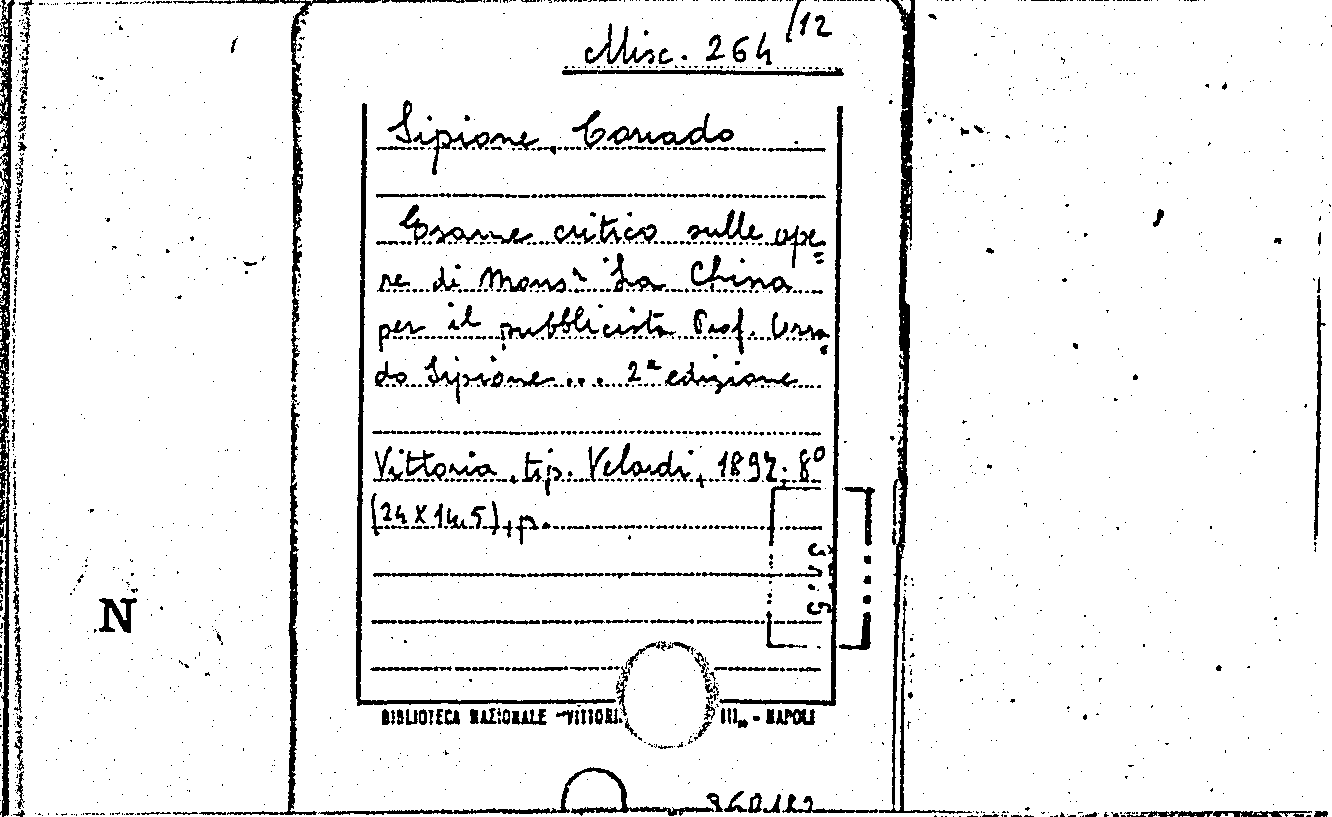 Misc. 264/12
Sipione, Corrado
Esame critico sulle ope=
re di Mons.r La China
per il pubblicista Prof. Corra=
do Sipione ... 2a edizione
Vittoria, tip. Velardi, 1897. 8º
(24 X 14,5), p.
N
BIBLIOTECA NAZIONALE "VITTORI III„ - NAPOLI